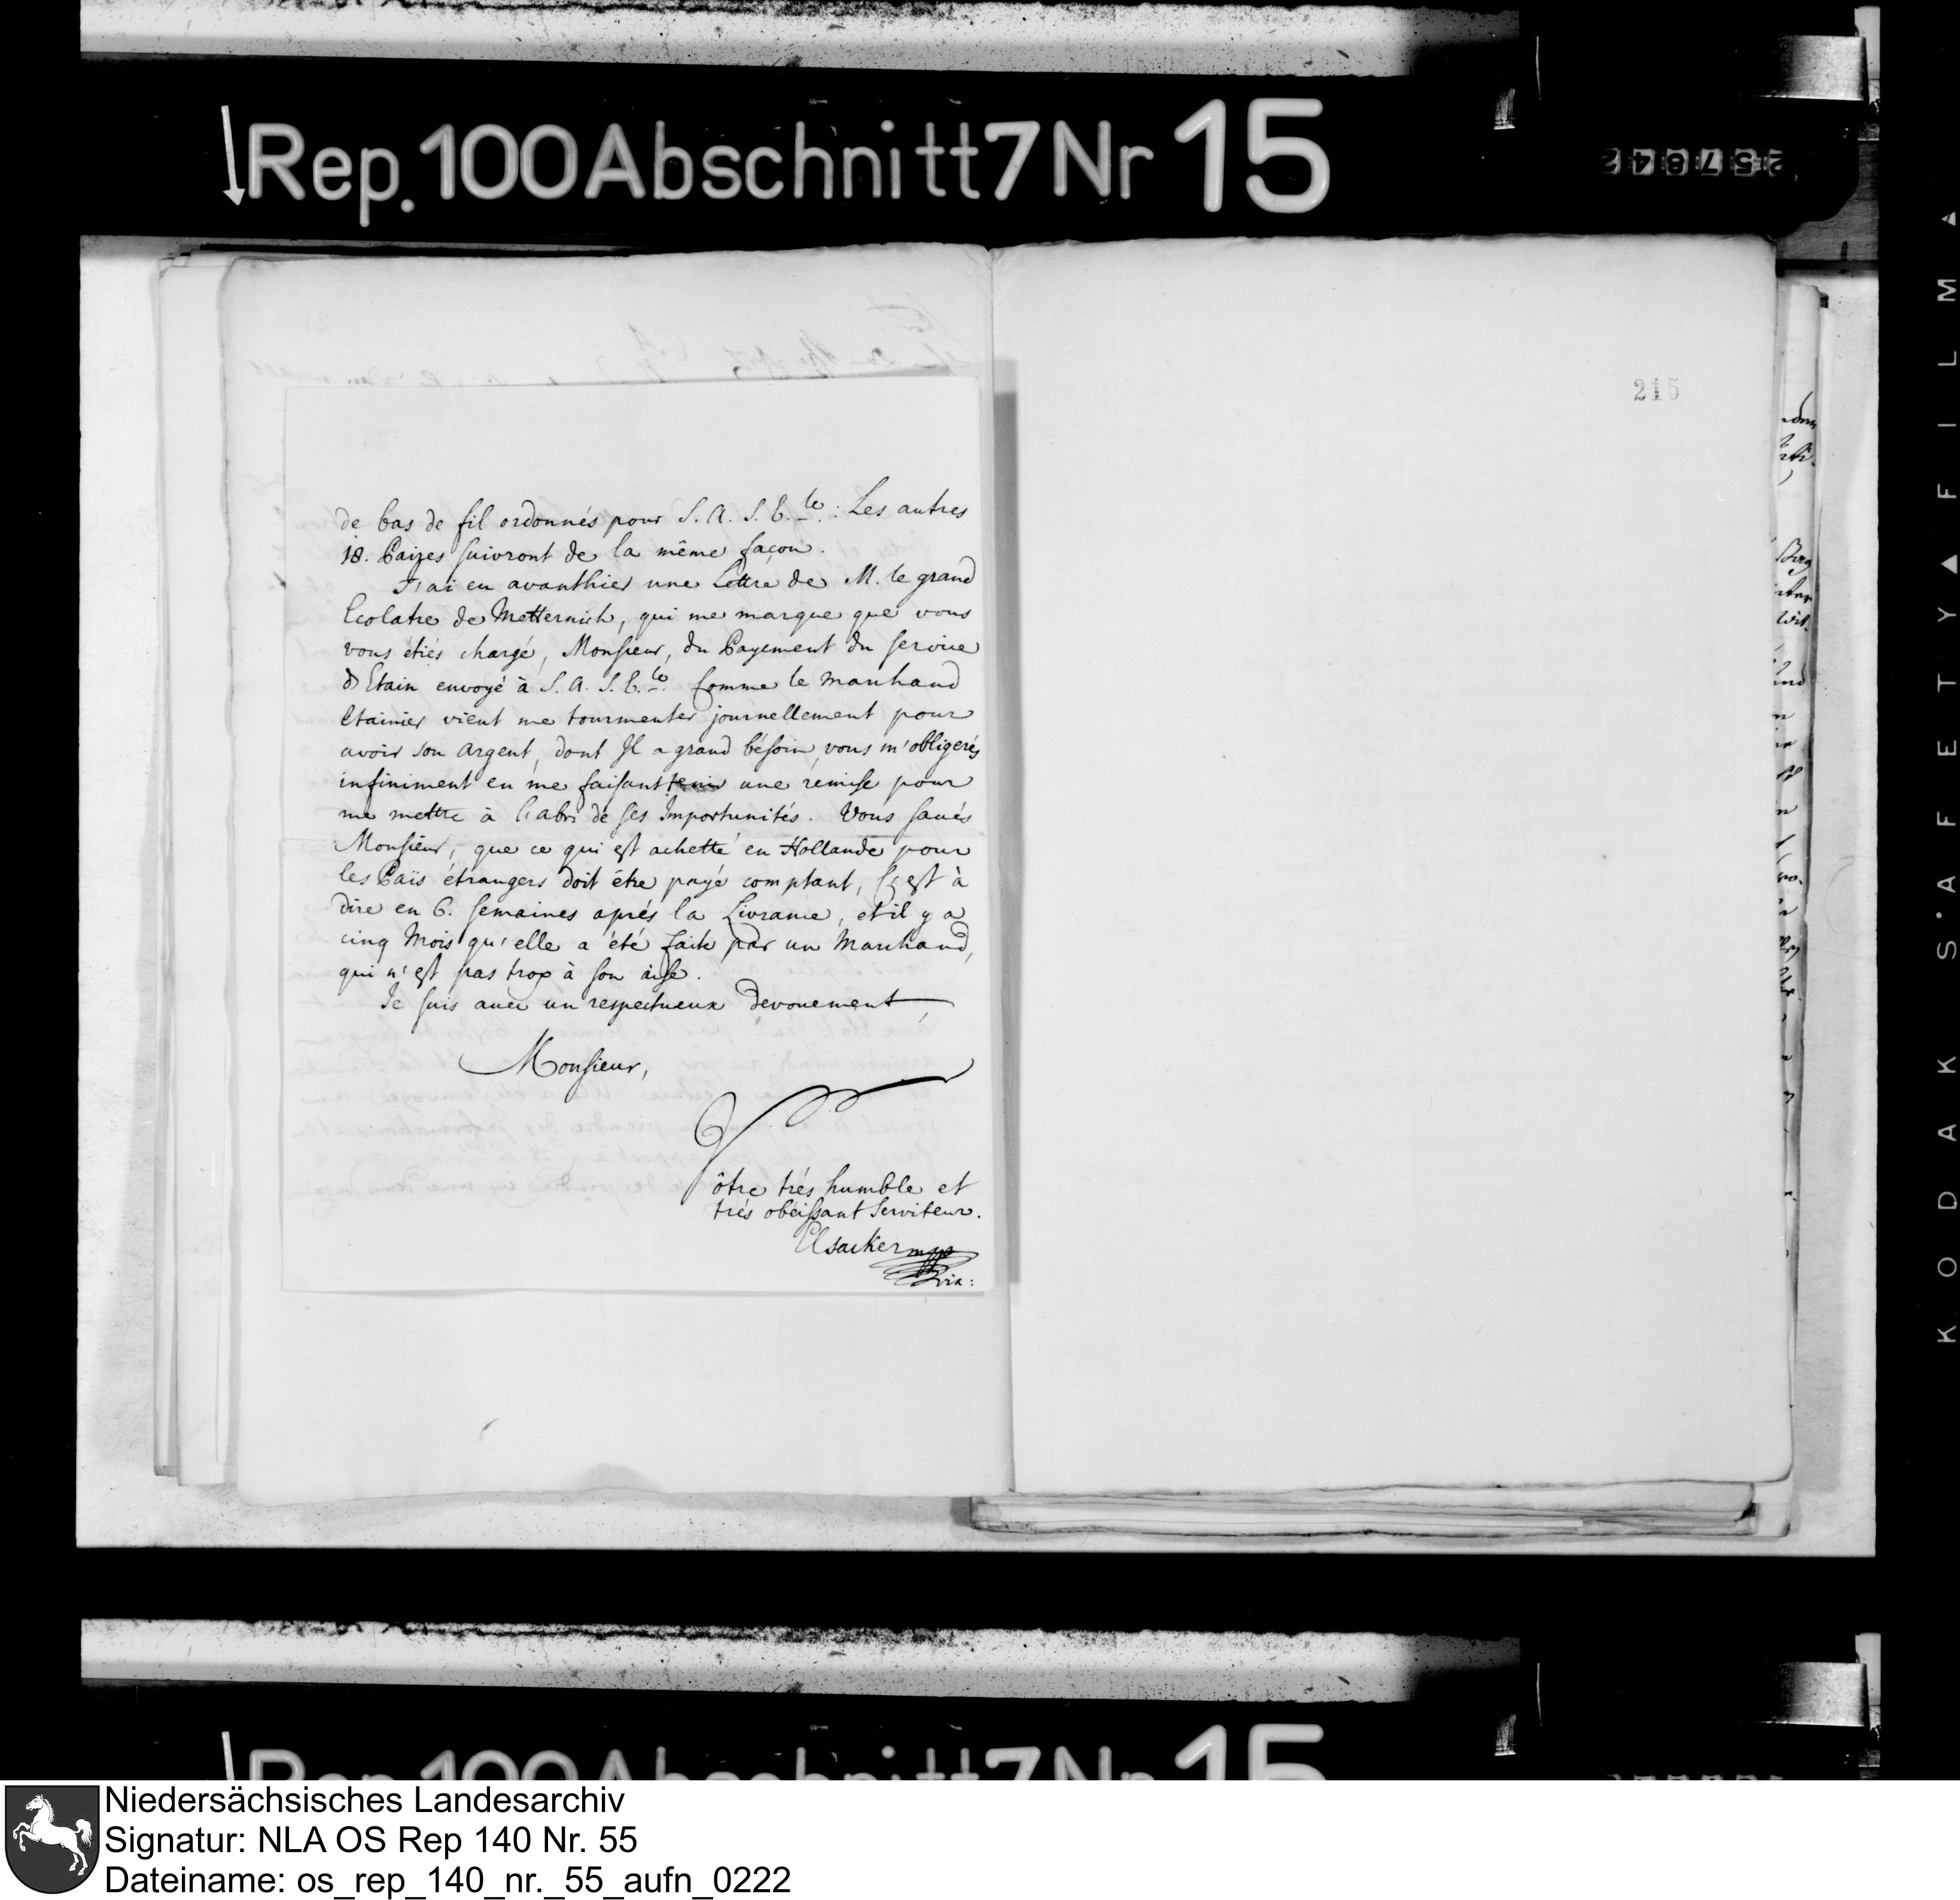 Rep. 100 Abschnitt 7 Nr 15
257842
215
de bas de fil ordonnés pour S. A. S. E.le: Les autres
18. Paires suivront de la même façon.
J'ai eu avanthier une Lettre de M. le grand
Ecolatre de Metternich, qui me marque que vous
vous étiés chargé, Monsieur, du Payement du service
d'Etain envoyé à S. A. S. E.le Comme le Marchand
Etainier vient me tourmenter journellement pour
avoir son argent, dont Il a grand bésoin, vous m'obligerés
infiniment en me faisant tenir une remise pour
me mettre à l'abri de ses Importunités. Vous savés
Monsieur, que ce qui est achetté en Hollande pour
les Païs étrangers doit étre payé comptant, c'est à
dire en 6. semaines aprés la Livrance, et il y a
cinq Mois qu'elle a été faite par un Marchand,
qui n'est pas trop à son aise.
Je suis avec un respectueux devouement,
Monsieur,
Vôtre trés humble et
trés obéissant Serviteur.
Elsacker mpp
KODAK SAFETY FILM
Rep. 100 Abschnitt 7 Nr 15
Niedersächsisches Landesarchiv
Signatur: NLA OS Rep 140 Nr. 55
Dateiname: os_rep_140_nr._55_aufn_0222